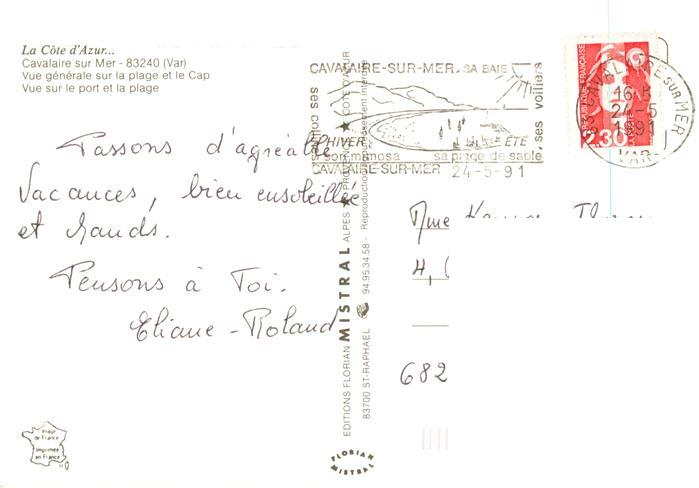 La Côte d'Azur...
Cavalaire sur Mer - 83240 (Var)
Vue générale sur la plage et le Cap
Vue sur le port et la plage
CAVALAIRE-SUR-MER. SA BAIE
ses voiliers
HIVER
ÉTÉ
son mimosa sa plage de sable
CAVALAIRE-SUR-MER 24-5-91
RÉPUBLIQUE FRANÇAISE
2,30
83 CAVALAIRE SUR MER
16 H
24-5
1991
VAR
Passons d'agréable
Vacances, bien ensoleillée
et chauds.
Pensons à Toi.
Eliane - Roland
Mme
4,
682
EDITIONS FLORIAN MISTRAL ALPES ★ PROVENCE ★ CÔTE D'AZUR
83700 ST-RAPHAEL 94.95.34.58 - Reproduction interdite
Image
de France
Imprimée
en France
FLORIAN
MISTRAL